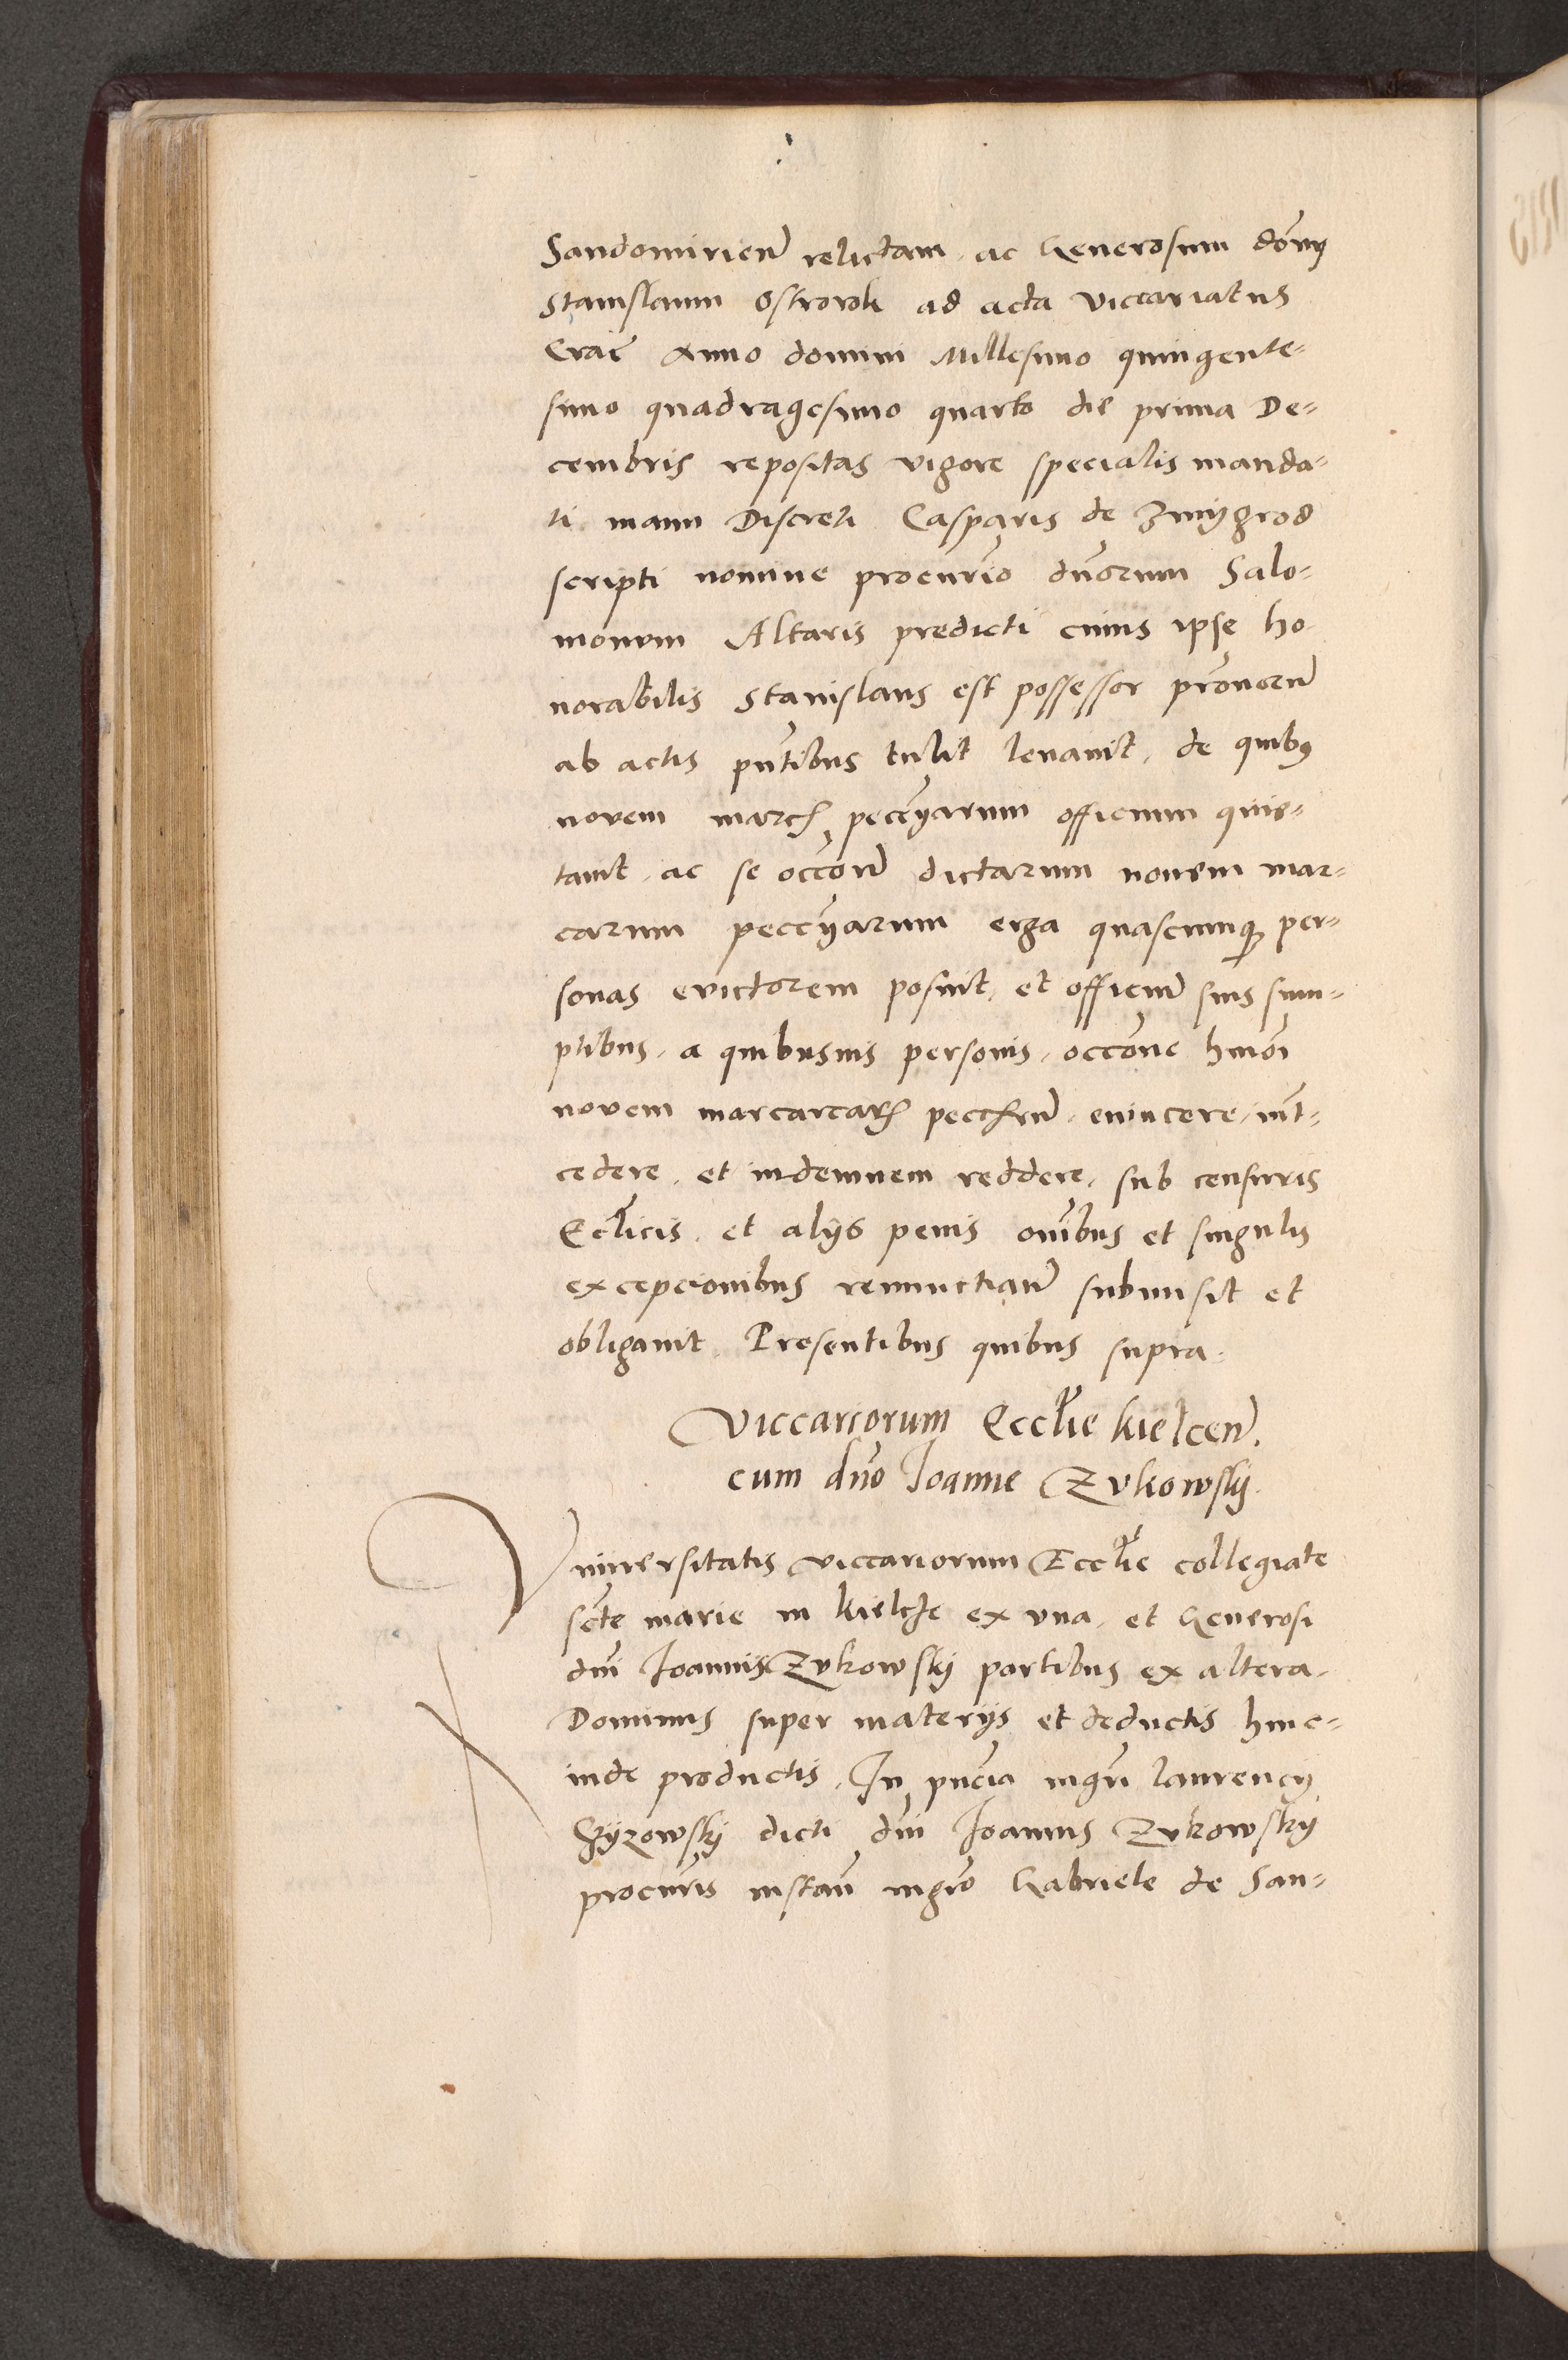 Sandomirień relictam, ac Generosum dom̄
Stanislaum Ostrorok ad acta viccariatus
Crac̄ Anno domini Millesimo quingente=
simo quadragesimo quarto die prima De=
cembris repositas vigore specialis manda=
ti manu Discreti Casparis de Zmygrod
scripti nomine procur̄io dn̄orum Salo=
monem Altaris predicti cuius ipse ho=
norabilis Stanislaus est possessor
ab actis pn̄tibus tulit levavit, de quibꝫ
novem marc̄ pecc̄yarum officium quie=
tavit, ac se occoń dictarum novem mar=
carum pecc̄yarum erga quascumqꝫ per=
sonas evictorem posuit, et officiū suis sum=
ptibus, a quibusvis personis, occōne hm̄oi
novem marcarcarꝫ, evincere, int̄=
cedere, et indemnem reddere, sub censuris
Ecl̄icis, et alijs penis om̄ibus et singulis
excepcionibus renunctiań submisit et
obligavit. Presentibus quibus supra.
Viccariorum Eccl̄ie Kielceń.
cum dn̄o Joanne Zvkowskij.
Vniversitatis viccariorum Eccl̄ie collegiate
sc̄te marie in Kielcze ex vna, et Generosi
dn̄i Joannis Zvkowskij partibus ex altera.
Dominus super materijs et deductis hinc=
inde productis, In pn̄cia mgr̄i laurencij
dicti dn̄i Joannis Zvkowskij
procur̄is instań mgr̄o Gabriele de San=